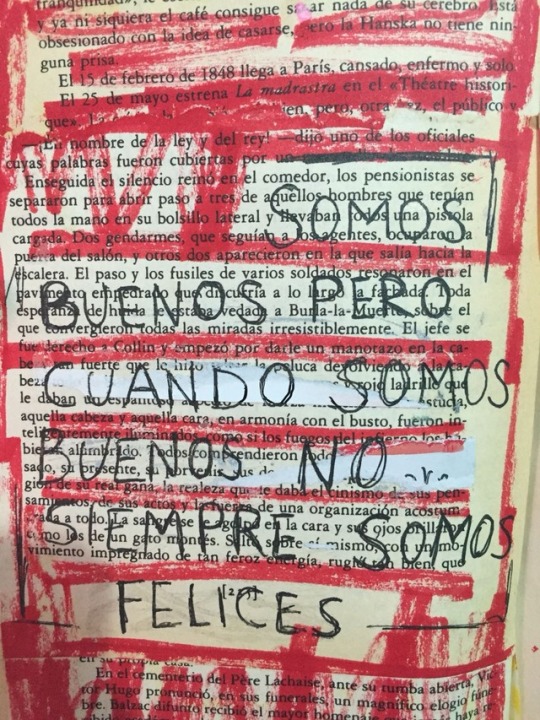 tranquilidad», le
y ya ni siquiera el café consigue sacar nada de su cerebro. Está
obsesionado con la idea de casarse, pero la Hanska no tiene nin-
guna prisa.
El 15 de febrero de 1848 llega a París, cansado, enfermo y solo.
El 25 de mayo estrena La madrastra en el «Théatre histori-
que». pero, otra vez, el público y
¡En nombre de la ley y del rey! —dijo uno de los oficiales
cuyas palabras fueron cubiertas por un
Enseguida el silencio reinó en el comedor, los pensionistas se
separaron para abrir paso a tres de aquellos hombres que tenían
todos la mano en su bolsillo lateral y llevaban todos una pistola
cargada. Dos gendarmes, que seguían a los agentes, ocuparon la
puerta del salón, y otros dos aparecieron en la que salía hacia la
escalera. El paso y los fusiles de varios soldados resonaron en el
pavimento empedrado que discurría a lo largo de la fachada. Toda
esperanza de huida le estaba vedada a Burla-la-Muerte, sobre el
que convergieron todas las miradas irresistiblemente. El jefe se
fue derecho a Collin y empezó por darle un manotazo en la ca-
be tan fuerte que le hizo la peluca devolviendo a la ca-
bez rojo ladrillo que
le daban un espantoso
aquella cabeza y aquella cara, en armonía con el busto, fueron in-
teligentemente iluminados como si los fuegos del infierno los hu-
bieran alumbrado. Todos comprendieron todo
sado, su presente, su
gión de su real gana, la realeza que le daba el cinismo de sus pen-
samientos, de sus actos y la fuerza de una organización acostum-
brada a todo. La sangre se le agolpó en la cara y sus ojos brillaron
como los de un gato montés. Saltó sobre sí mismo, con un mo-
vimiento impregnado de tan feroz energía, rugió tan bien, que
SOMOS
BUENOS PERO
CUANDO SOMOS
BUENOS NO
SIEMPRE SOMOS
FELICES
en su propia casa.
En el cementerio del Père Lachaise, ante su tumba abierta, Víc-
tor Hugo pronunció, en sus funerales, un magnífico elogio fúne-
bre. Balzac difunto recibió el mayor homenaje